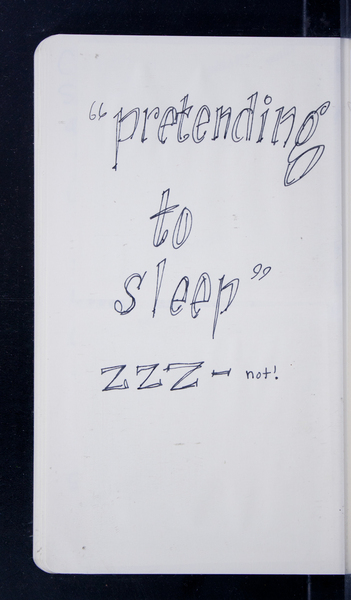 “pretending
to
sleep”
ZZZ – not!